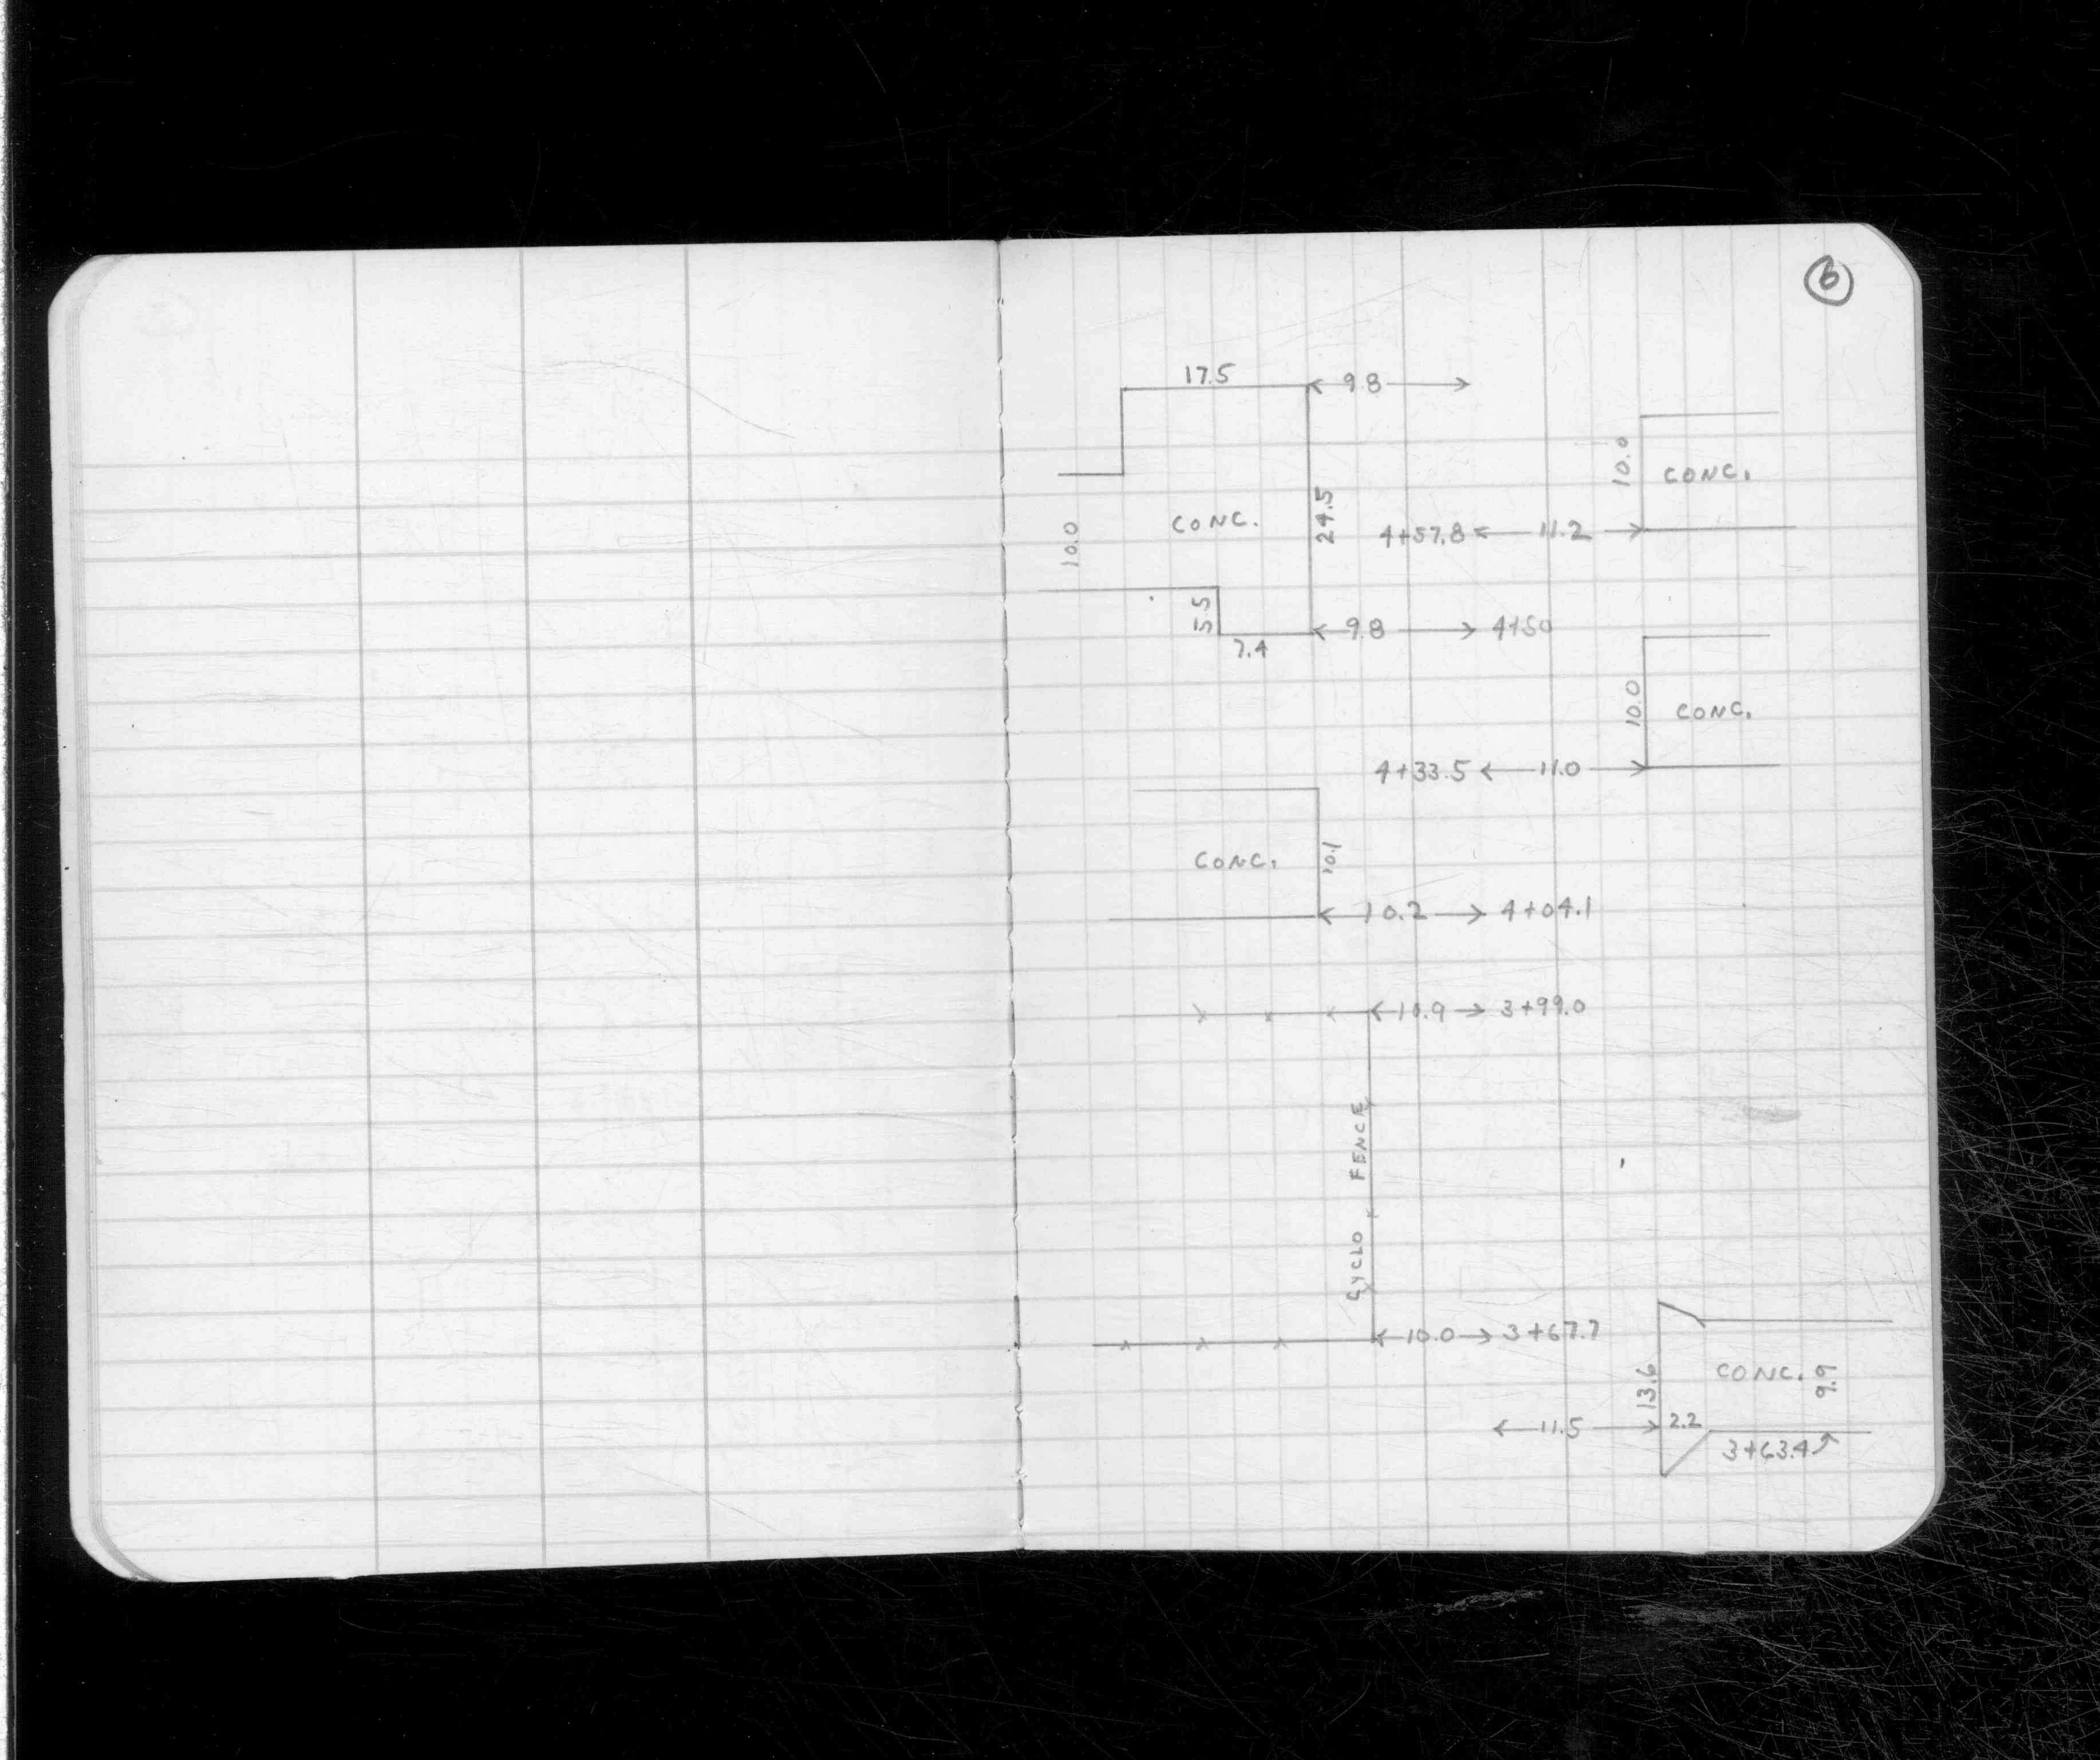 6
17.5 9.8
10.0
CONC.
CONC.
24.5
10.0
4+57.8 11.2
5.5
9.8 4+50
7.4
10.0
CONC.
4+33.5 11.0
CONC.
10.1
10.2 4+04.1
10.9 3+99.0
CYCLO FENCE
10.0 3+67.7
13.6
CONC. 9.9
11.5 2.2
3+63.4